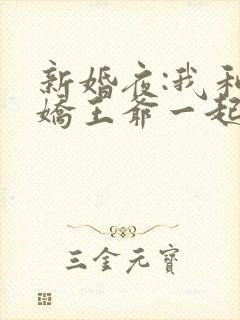 新婚夜:我和
嬌王爺一起
三金元寶